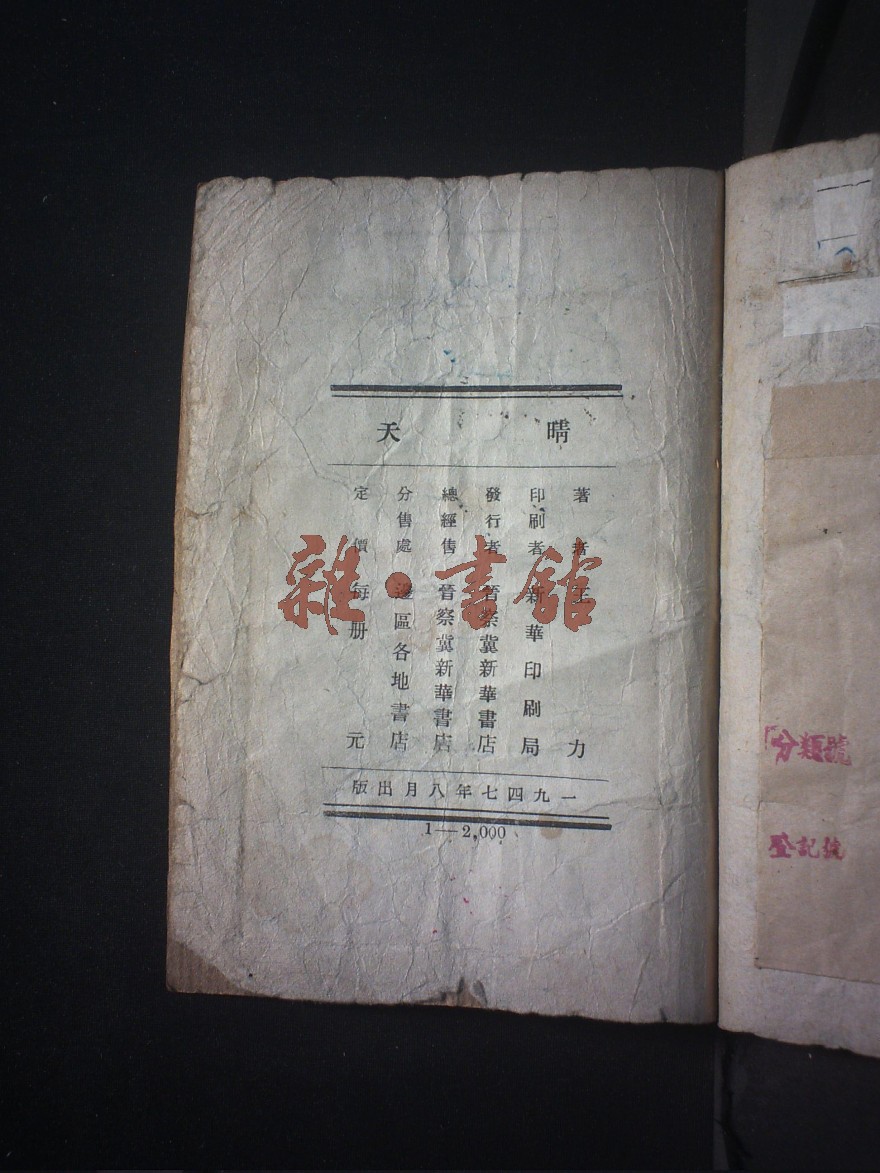 晴天
著者 王力
印刷者 新華印刷局
發行者 晉察冀新華書店
總經售 晉察冀新華書店
分售處 邊區各地書店
定價 每册 元
一九四七年八月出版
1—2,000
雜·書館
分類號
登記號